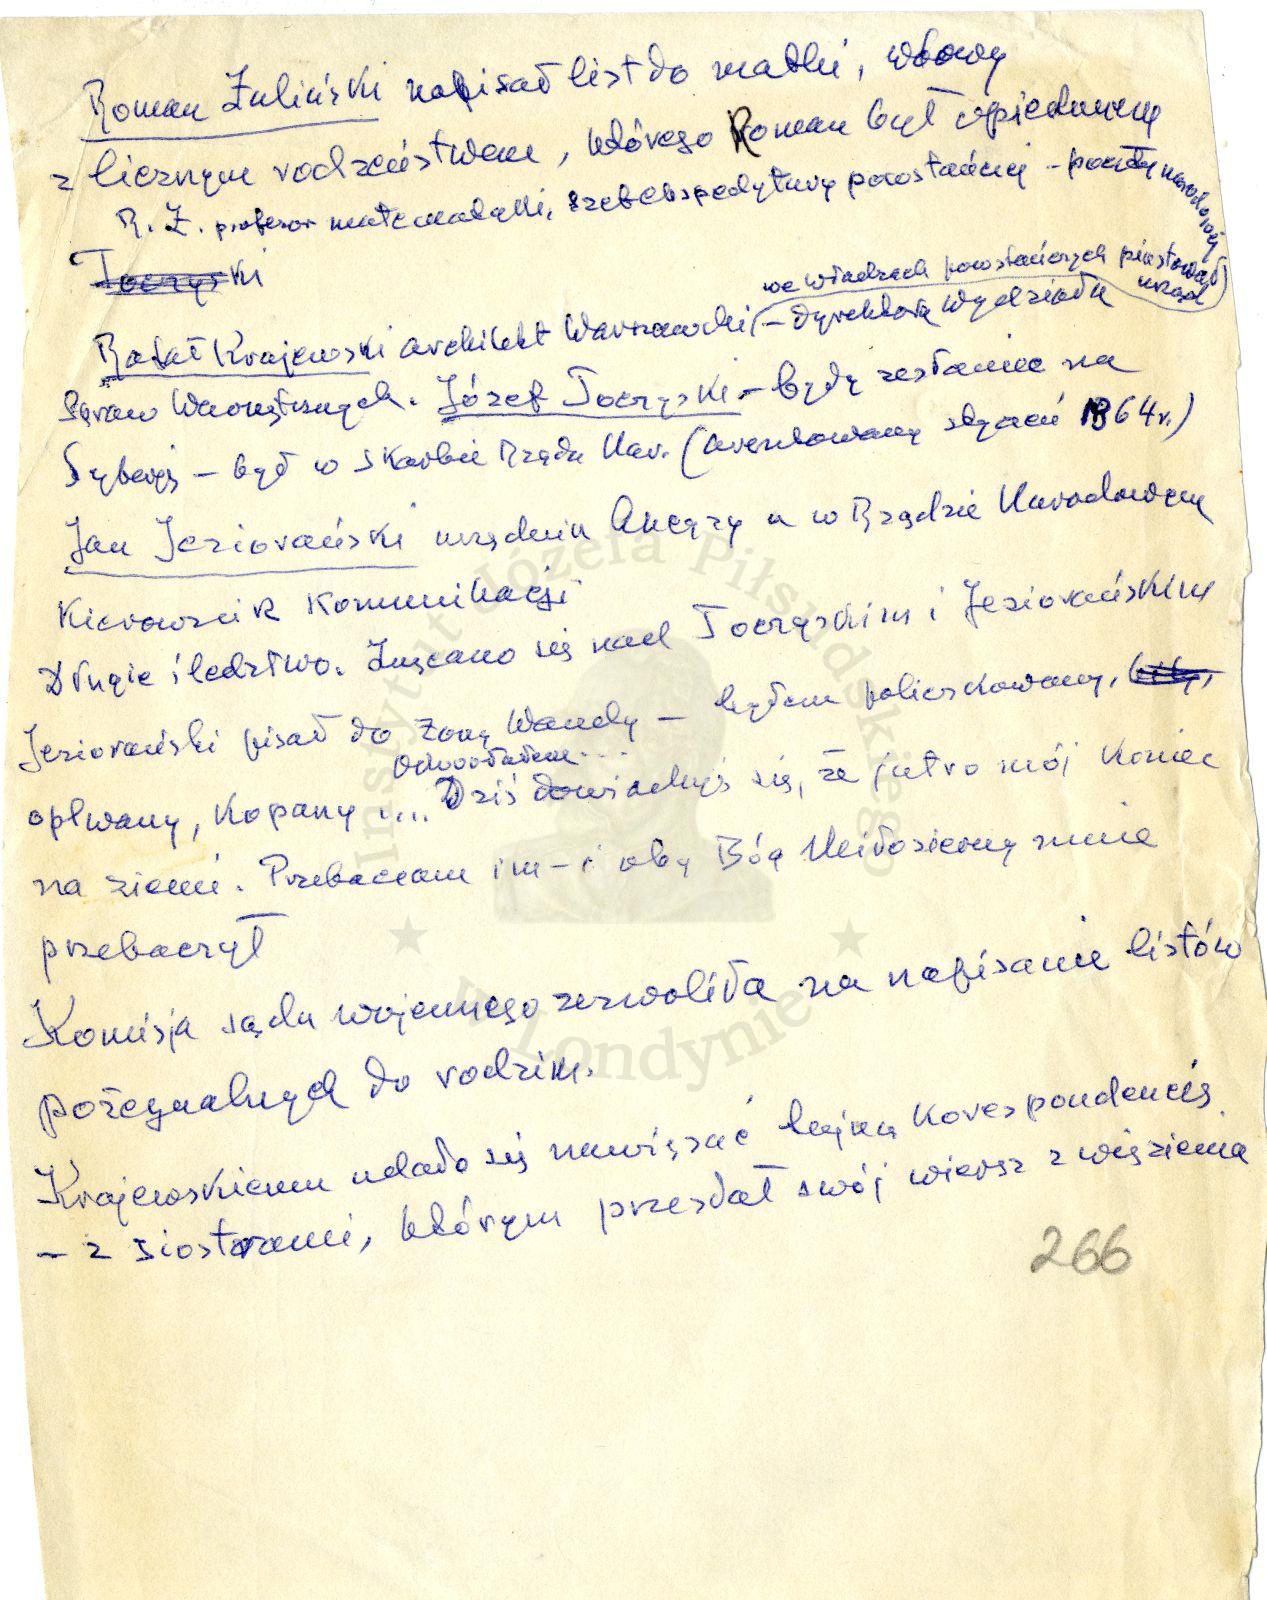 Roman Żuliński napisał list do matki, wdowy
z licznym rodzeństwem, którego Roman był opiekunem
R. Ż. profesor matematyki, szef ekspedytury powstańczej - poczty narodowej
Toczyski
we władzach powstańczych piastował urząd
Rafał Krajewski architekt Warszawski - dyrektora Wydziału
Spraw Wewnętrznych. Józef Toczyski - były zesłaniec na
Syberię - był w skarbie Rządu Nar. (aresztowany styczeń 1864 r.)
Jan Jeziorański urzędnik Akcyzy a w Rządzie Narodowym
Kierownik Komunikacji
Drugie śledztwo. Znęcano się nad Toczyskim i Jeziorańskim
Jeziorański pisał do żony Wandy - byłem policzkowany,
Odwołałem...
opluwany, kopany .... Dziś dowiaduję się, że jutro mój koniec
na ziemi. Przebaczam im - i oby Bóg Miłosierny mnie
przebaczył
Komisja sądu wojennego zezwoliła na napisanie listów
pożegnalnych do rodzin.
Krajewskiemu udało się nawiązać tajną korespondencję
- z siostrami, którym przesłał swój wiersz z więzienia
266
Instytut Józefa Piłsudskiego
w Londynie